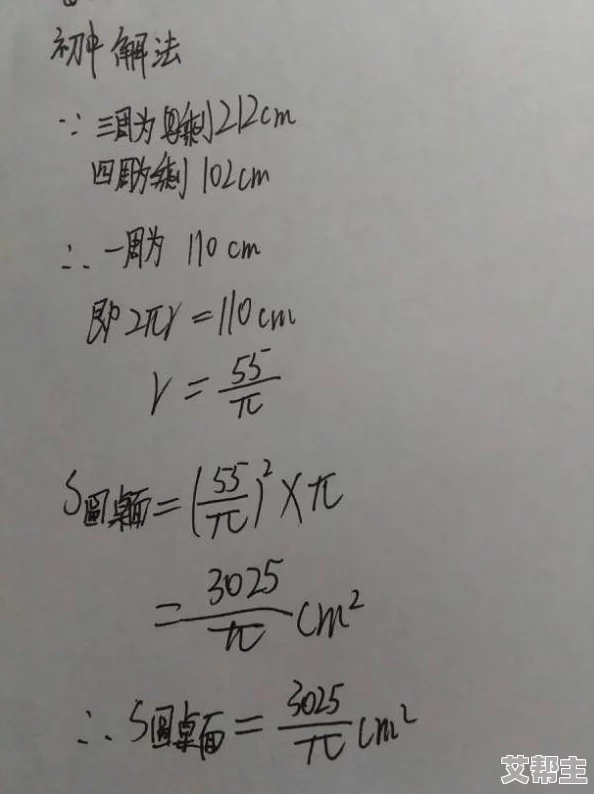 初中解法
∵ 三周为剩212cm
四周为剩102cm
∴ 一周为 110cm
即2πr=110cm
r=55/π
S圆桌面=(55/π)²×π
=3025/π cm²
∴ S圆桌面=3025/π cm²
艾帮主